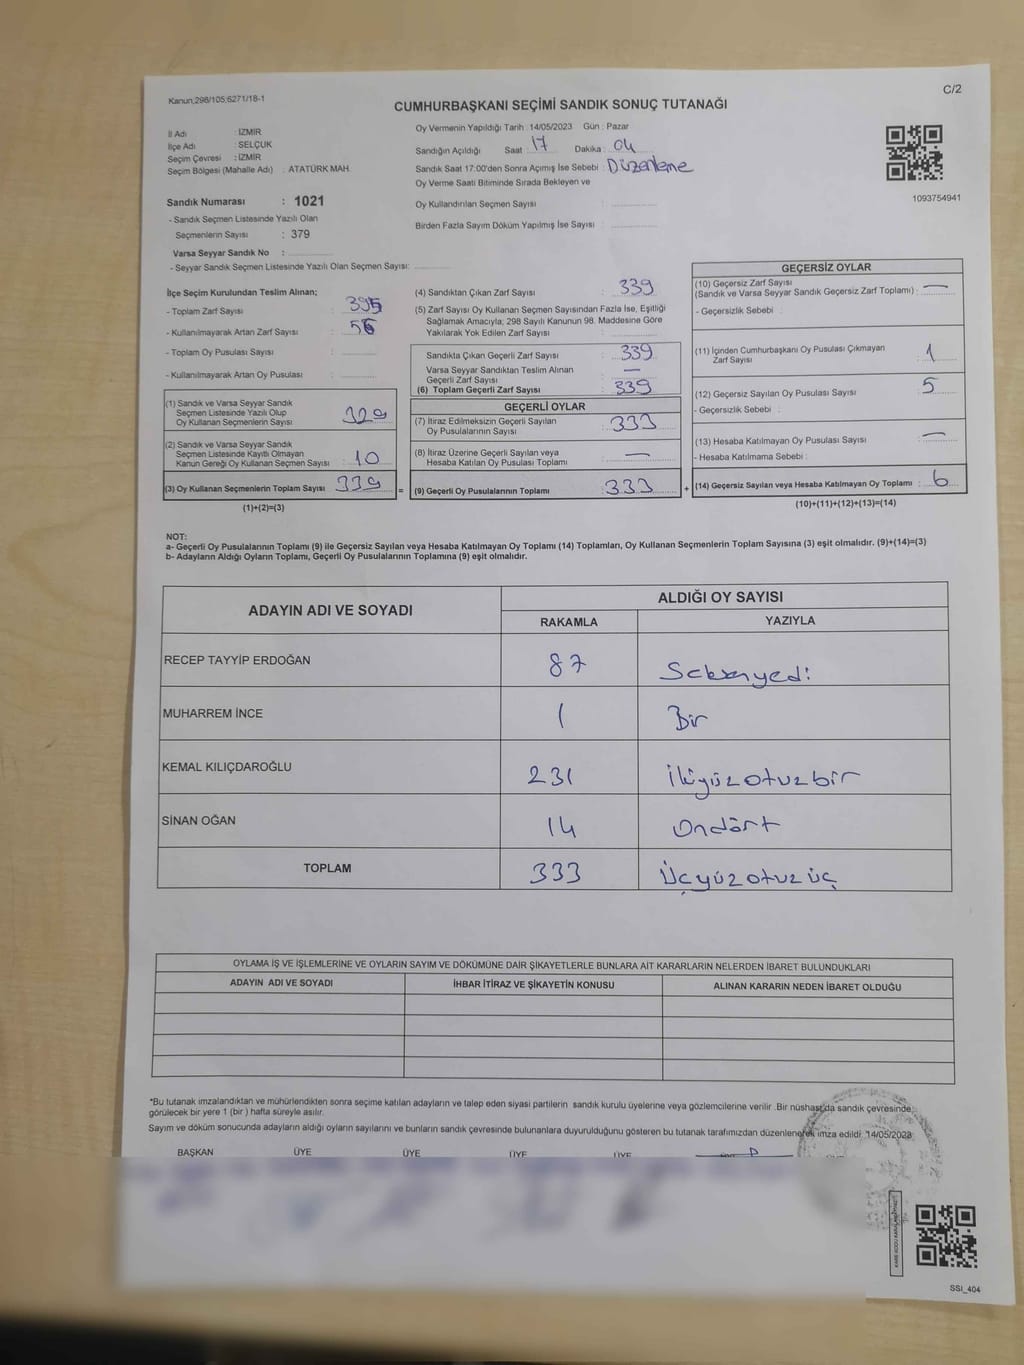 Kanun;298/105;6271/18-1
C/2
CUMHURBAŞKANI SEÇİMİ SANDIK SONUÇ TUTANAĞI
İl Adı : İZMİR
İlçe Adı : SELÇUK
Seçim Çevresi : İZMİR
Seçim Bölgesi (Mahalle Adı) : ATATÜRK MAH.
Sandık Numarası : 1021
- Sandık Seçmen Listesinde Yazılı Olan
Seçmenlerin Sayısı : 379
Varsa Seyyar Sandık No :
- Seyyar Sandık Seçmen Listesinde Yazılı Olan Seçmen Sayısı:
Oy Vermenin Yapıldığı Tarih : 14/05/2023 Gün : Pazar
Sandığın Açıldığı Saat : 17 Dakika : 04
Sandık Saat 17:00'den Sonra Açımış İse Sebebi : Düzenleme
Oy Verme Saati Bitiminde Sırada Bekleyen ve
Oy Kullandırılan Seçmen Sayısı :
Birden Fazla Sayım Döküm Yapılmış İse Sayısı :
1093754941
İlçe Seçim Kurulundan Teslim Alınan;
- Toplam Zarf Sayısı : 395
- Kullanılmayarak Artan Zarf Sayısı : 56
- Toplam Oy Pusulası Sayısı :
- Kullanılmayarak Artan Oy Pusulası :
(1) Sandık ve Varsa Seyyar Sandık
Seçmen Listesinde Yazılı Olup
Oy Kullanan Seçmenlerin Sayısı : 329
(2) Sandık ve Varsa Seyyar Sandık
Seçmen Listesinde Kayıtlı Olmayan
Kanun Gereği Oy Kullanan Seçmen Sayısı : 10
(3) Oy Kullanan Seçmenlerin Toplam Sayısı : 339
(1)+(2)=(3)
=
(4) Sandıktan Çıkan Zarf Sayısı : 339
(5) Zarf Sayısı Oy Kullanan Seçmen Sayısından Fazla İse, Eşitliği
Sağlamak Amacıyla; 298 Sayılı Kanunun 98. Maddesine Göre
Yakılarak Yok Edilen Zarf Sayısı :
Sandıkta Çıkan Geçerli Zarf Sayısı : 339
Varsa Seyyar Sandıktan Teslim Alınan
Geçerli Zarf Sayısı : —
(6) Toplam Geçerli Zarf Sayısı : 339
GEÇERLİ OYLAR
(7) İtiraz Edilmeksizin Geçerli Sayılan
Oy Pusulalarının Sayısı : 333
(8) İtiraz Üzerine Geçerli Sayılan veya
Hesaba Katılan Oy Pusulası Toplamı : —
(9) Geçerli Oy Pusulalarının Toplamı : 333
+
GEÇERSİZ OYLAR
(10) Geçersiz Zarf Sayısı
(Sandık ve Varsa Seyyar Sandık Geçersiz Zarf Toplamı) : —
- Geçersizlik Sebebi :
(11) İçinden Cumhurbaşkanı Oy Pusulası Çıkmayan
Zarf Sayısı : 1
(12) Geçersiz Sayılan Oy Pusulası Sayısı : 5
- Geçersizlik Sebebi :
(13) Hesaba Katılmayan Oy Pusulası Sayısı : —
- Hesaba Katılmama Sebebi :
(14) Geçersiz Sayılan veya Hesaba Katılmayan Oy Toplamı : 6
(10)+(11)+(12)+(13)=(14)
NOT:
a- Geçerli Oy Pusulalarının Toplamı (9) ile Geçersiz Sayılan veya Hesaba Katılmayan Oy Toplamı (14) Toplamları, Oy Kullanan Seçmenlerin Toplam Sayısına (3) eşit olmalıdır. (9)+(14)=(3)
b- Adayların Aldığı Oyların Toplamı, Geçerli Oy Pusulalarının Toplamına (9) eşit olmalıdır.
ADAYIN ADI VE SOYADI
ALDIĞI OY SAYISI
RAKAMLA YAZIYLA
RECEP TAYYİP ERDOĞAN 87 Seksenyedi
MUHARREM İNCE 1 Bir
KEMAL KILIÇDAROĞLU 231 İkiyüzotuzbir
SİNAN OĞAN 14 Ondört
TOPLAM 333 Üçyüzotuzüç
OYLAMA İŞ VE İŞLEMLERİNE VE OYLARIN SAYIM VE DÖKÜMÜNE DAİR ŞİKAYETLERLE BUNLARA AİT KARARLARIN NELERDEN İBARET BULUNDUKLARI
ADAYIN ADI VE SOYADI İHBAR İTİRAZ VE ŞİKAYETİN KONUSU ALINAN KARARIN NEDEN İBARET OLDUĞU
*Bu tutanak imzalandıktan ve mühürlendikten sonra seçime katılan adayların ve talep eden siyasi partilerin sandık kurulu üyelerine veya gözlemcilerine verilir .Bir nüshası da sandık çevresinde,
görülecek bir yere 1 (bir ) hafta süreyle asılır.
Sayım ve döküm sonucunda adayların aldığı oyların sayılarını ve bunların sandık çevresinde bulunanlara duyurulduğunu gösteren bu tutanak tarafımızdan düzenlenerek imza edildi. 14/05/2023
BAŞKAN ÜYE ÜYE ÜYE ÜYE
SSI_404